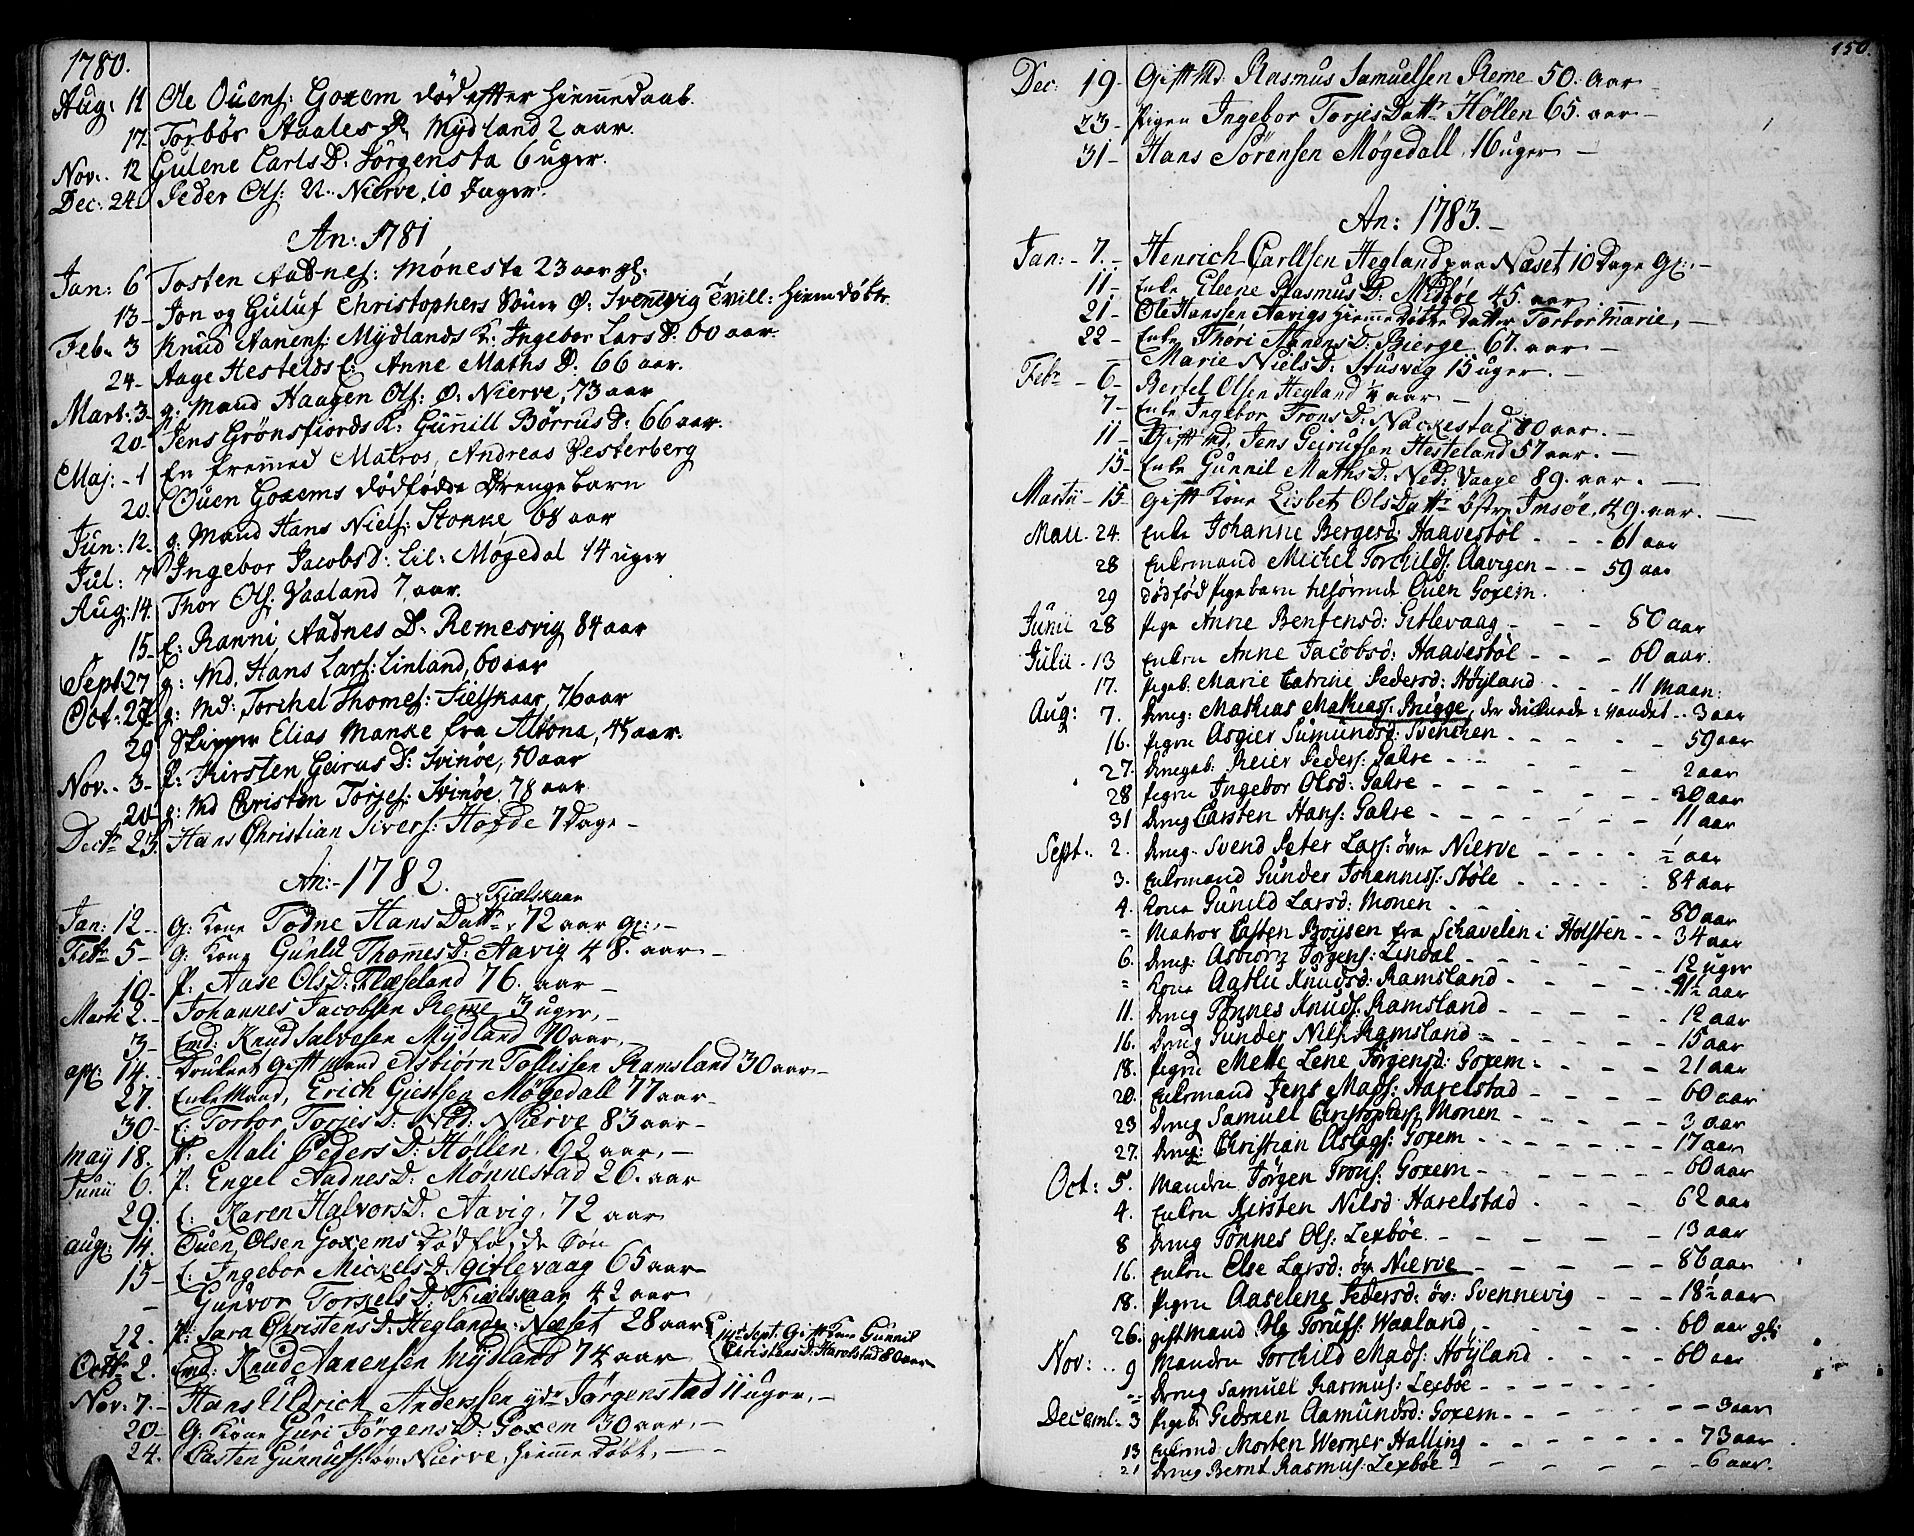 1780.
Aug: 11 Ole Ouens: Goxem død efter Hiemmedaab.
17- Torbør Aaales D. Mydland 2 aar.
Nov:. 12 Gulene Carls D: Jörgensta 6 uger.
Dec: 24. Peder Ols: N.. Nierve, 10 Dager.
An: 1781
Jan: 6 Tosten Aadnes: Mönesta 23 aar gl:
13- Jon og Guluf Christophers Sönner Ø: Svennevig Tvill: Hiemdöbte.
Feb. 3 Knud Aanens: Mydlands K: Ingebor Lars D: 60 aar.
24- Aage Hestelds E: Anne Maths D. 66 aar.
Mart: 3- g: Mand Haagen Ols: Ø: Nierve, 73 aar
20- Jens Grönsfiords K: Gunnill Börrus D: 66 aar.
Maj: - 1 En fremmed Matros, Andreas Vesterberg
20. Ouen Goxems dödfödde Drengebarn
Jun: 12. g: Mand Hans Niels: Stonke 68 aar
Jul: 7 Ingebor Jacobsd: Lil: Møgedal 14 uger
Aug: 14. Thor Ols: Vaaland 7, aar.
15- E: Ranni Aadnes D: Remesvig 84 aar
Sept 27 g: Md. Hans Lars: Linland, 60 aar
Oct: 27 g: Md: Torchel Thomes: Fielskaar, 76 aar
29 Skipper Elias Manke fra Altona, 45 aar.
Nov.. 3- P: Kirsten Geirus D: Svinöe, 50 aar
20- g: Md Christen Torjes: Svinöe. 78 aar
Dectr 23. Hans Christian Sivers: Hofde 7 Dage -
An:- 1782.
Fiælskaar
Jan: 12- G: Kone Todne Hans Dattr, 72 aar gl:,-
Febr 5- G: Kone Gunild Thommes D: Aavig 48. aar -
10- P: Aase Ols D: Flæseland 76. aar -
Marti 2.- Johannes Jacobsen Remme 3 uger,-
3- Emd: Knud Salvesen Mydland 70 aar,-
apl: 14. Druknet Gift Mand Asbiørn Tollissen Ramsland 30 aar-
27. Enke Mand, Erich Giertsen Møgedall 77 aar-
30- E: Torbor Torjes D: Ned: Nierve 83 aar-
Maij 18. P: Mali Peders D: Høllen, 62 aar,-
Junii 6. P: Engel Aadnes D: Mønnestad 26. aar
29. E: Karen Halvors D: Aavig, 72 aar
aug: 14. Ouen Olsen Goxems Dödfødde Sön
15- E: Ingebor Mickels D: Gitlevaag 65 aar-
- Gunvor Torkels D: Fiælskaar 42 aar
22. P: Sara Christens D: Heglands: Næset 28 aar
14d Sept: Gift Kone Gunnil
Christens D: Harelstad 80 aar
Octr 2. Emd: Knud Aanensen Mydland 74 aar
Nov: 7- Hans Uldrich Anderssen ydr Jørgenstad 11 ugr,-
20- G: Kone Guri Jörgens D: Goxem 30 aar,-
24. Casten Gunnufs: öv: Nierve, Hiemme döbt,-
150.
Dec: 19- Gift Md: Rasmus Samuelsen Reme 50. Aar
23- Pigen Ingebor Torjes Dattr Høllen 65. aar-
31- Hans Sörensen Møgedall, 16 uger -
An: 1783.-
Jan: - 7.- Henrich Carllsen Hegland paa Næset 10 Dage Gl:,-
11- Enke Eleene Rasmus D: Midbøe 45. aar
21- Ole Hanssen Aavigs Hiemmedöbte datter Torbor Marie,-
22- Enke Thøri Aanens D: Bierge 67. aar -
- Marie Niels D: Husvig 15 uger. -
Febr - 6- Bertel Olsen Hegland 1/4 aar -
7- Enke Ingebor Trons D: Nackestad 80 aar. -
11- Gift Md, Jens Guruffsen Hesteland 57 aar. -
15- Enke Gunnil Maths D: Ned: Vaage 89. aar. -
Martii - 15- Gift Kone Lisbet Ols Dattr östre Imsöe, 49. aar. -
Maii. 24. Enke Johanne Bergersd: Haavestøl - - - 61 aar
28 Enkemand Michel Torchilds: Aavigen - - 59 aar
29 Dödfød Pigebarn tilhörende Ouen Goxem.
Junii 28 Pige Anne Bentensd: Gitlevaag - - - 80 aar
Julii - 13 Enken Anne Jacobsd: Haavestøl - - - 60 aar.
17. Pigeb: Marie Catrine Pedersd: Høyland - - - 11 Maan:
Aug: 7. Dreng: Mathias Mathiass: Brigge, der druknede i Vandet.. 3 aar
16. Pigen Asgier Sumundsd: Svenchen - - - - - 59 aar
27. Drengeb: Reier Peders: Gahre - - - - - 2 aar
28 Pigen Ingebor Olsd: Gahre - - - - - - 30 aar
31 Dreng Carsten Hans: Gahre - - - - - - 11 aar
Sept:. 2. Dreng. Svend Peter Lars: övre Nierve - - - - 1/2 aar
3. Enkemand Gunder Johanness: Støle - - - - 84 aar
4. Kone Gunild Larsd: Monen - - - - - 80 aar
" Matros Casten Boysen fra Schavelen i Holsten - - 34 aar
6. Dreng: Asbiörn Jörgens: Lindal - - - - - 12 uger
" Kone Aaslu Knudsd: Ramsland - - - - - 41 1/2 aar
11. Dreng Tönnes Knuds: Ramsland - - - - - 12 aar
16. Dreng Gunder Nils: Ramsland - - - - - 15 aar
18. Pigen Mette Lene Jörgensd: Goxem - - - - 21 aar
20. Enkemand Jens Mads: Harelstad - - - - 60 aar
23 Dreng Samuel Christophers: Monen - - - - - 3 aar
27. Dreng: Christian Aslags: Goxem - - - - - - 17 aar
Oct: 5. Manden Jörgen Trons: Goxem - - - - - 60 aar
4. Enken Kirsten Nilsd: Harelstad - - - - 62 aar
8 Dreng Tönnes Ols: Lexböe - - - - - - 13 aar
16. Enken Else Larsd: öv Nierve - - - - - 86 aar
18. Pigen Aaselene Pedersd: öv: Svennevig - - - 18 1/2 aar
26. gift Mand Ole Torufs: Waaland - - - - - 60 aar gl:
Nov: .. 9 Manden Torchild Mads: Høyland - - - - 60 aar
" Dreng Samuel Rasmus: Lexböe - - - - - -
Deceml- 3 Pigeb: Gedsken Aamundsd: Goxem - - - - - 3 aar
13 Enkemd Morten Werner Halling - - - - - - 73 aar
21 Dreng Bernt Rasmus: Lexböe - - - - - - 6 aar.